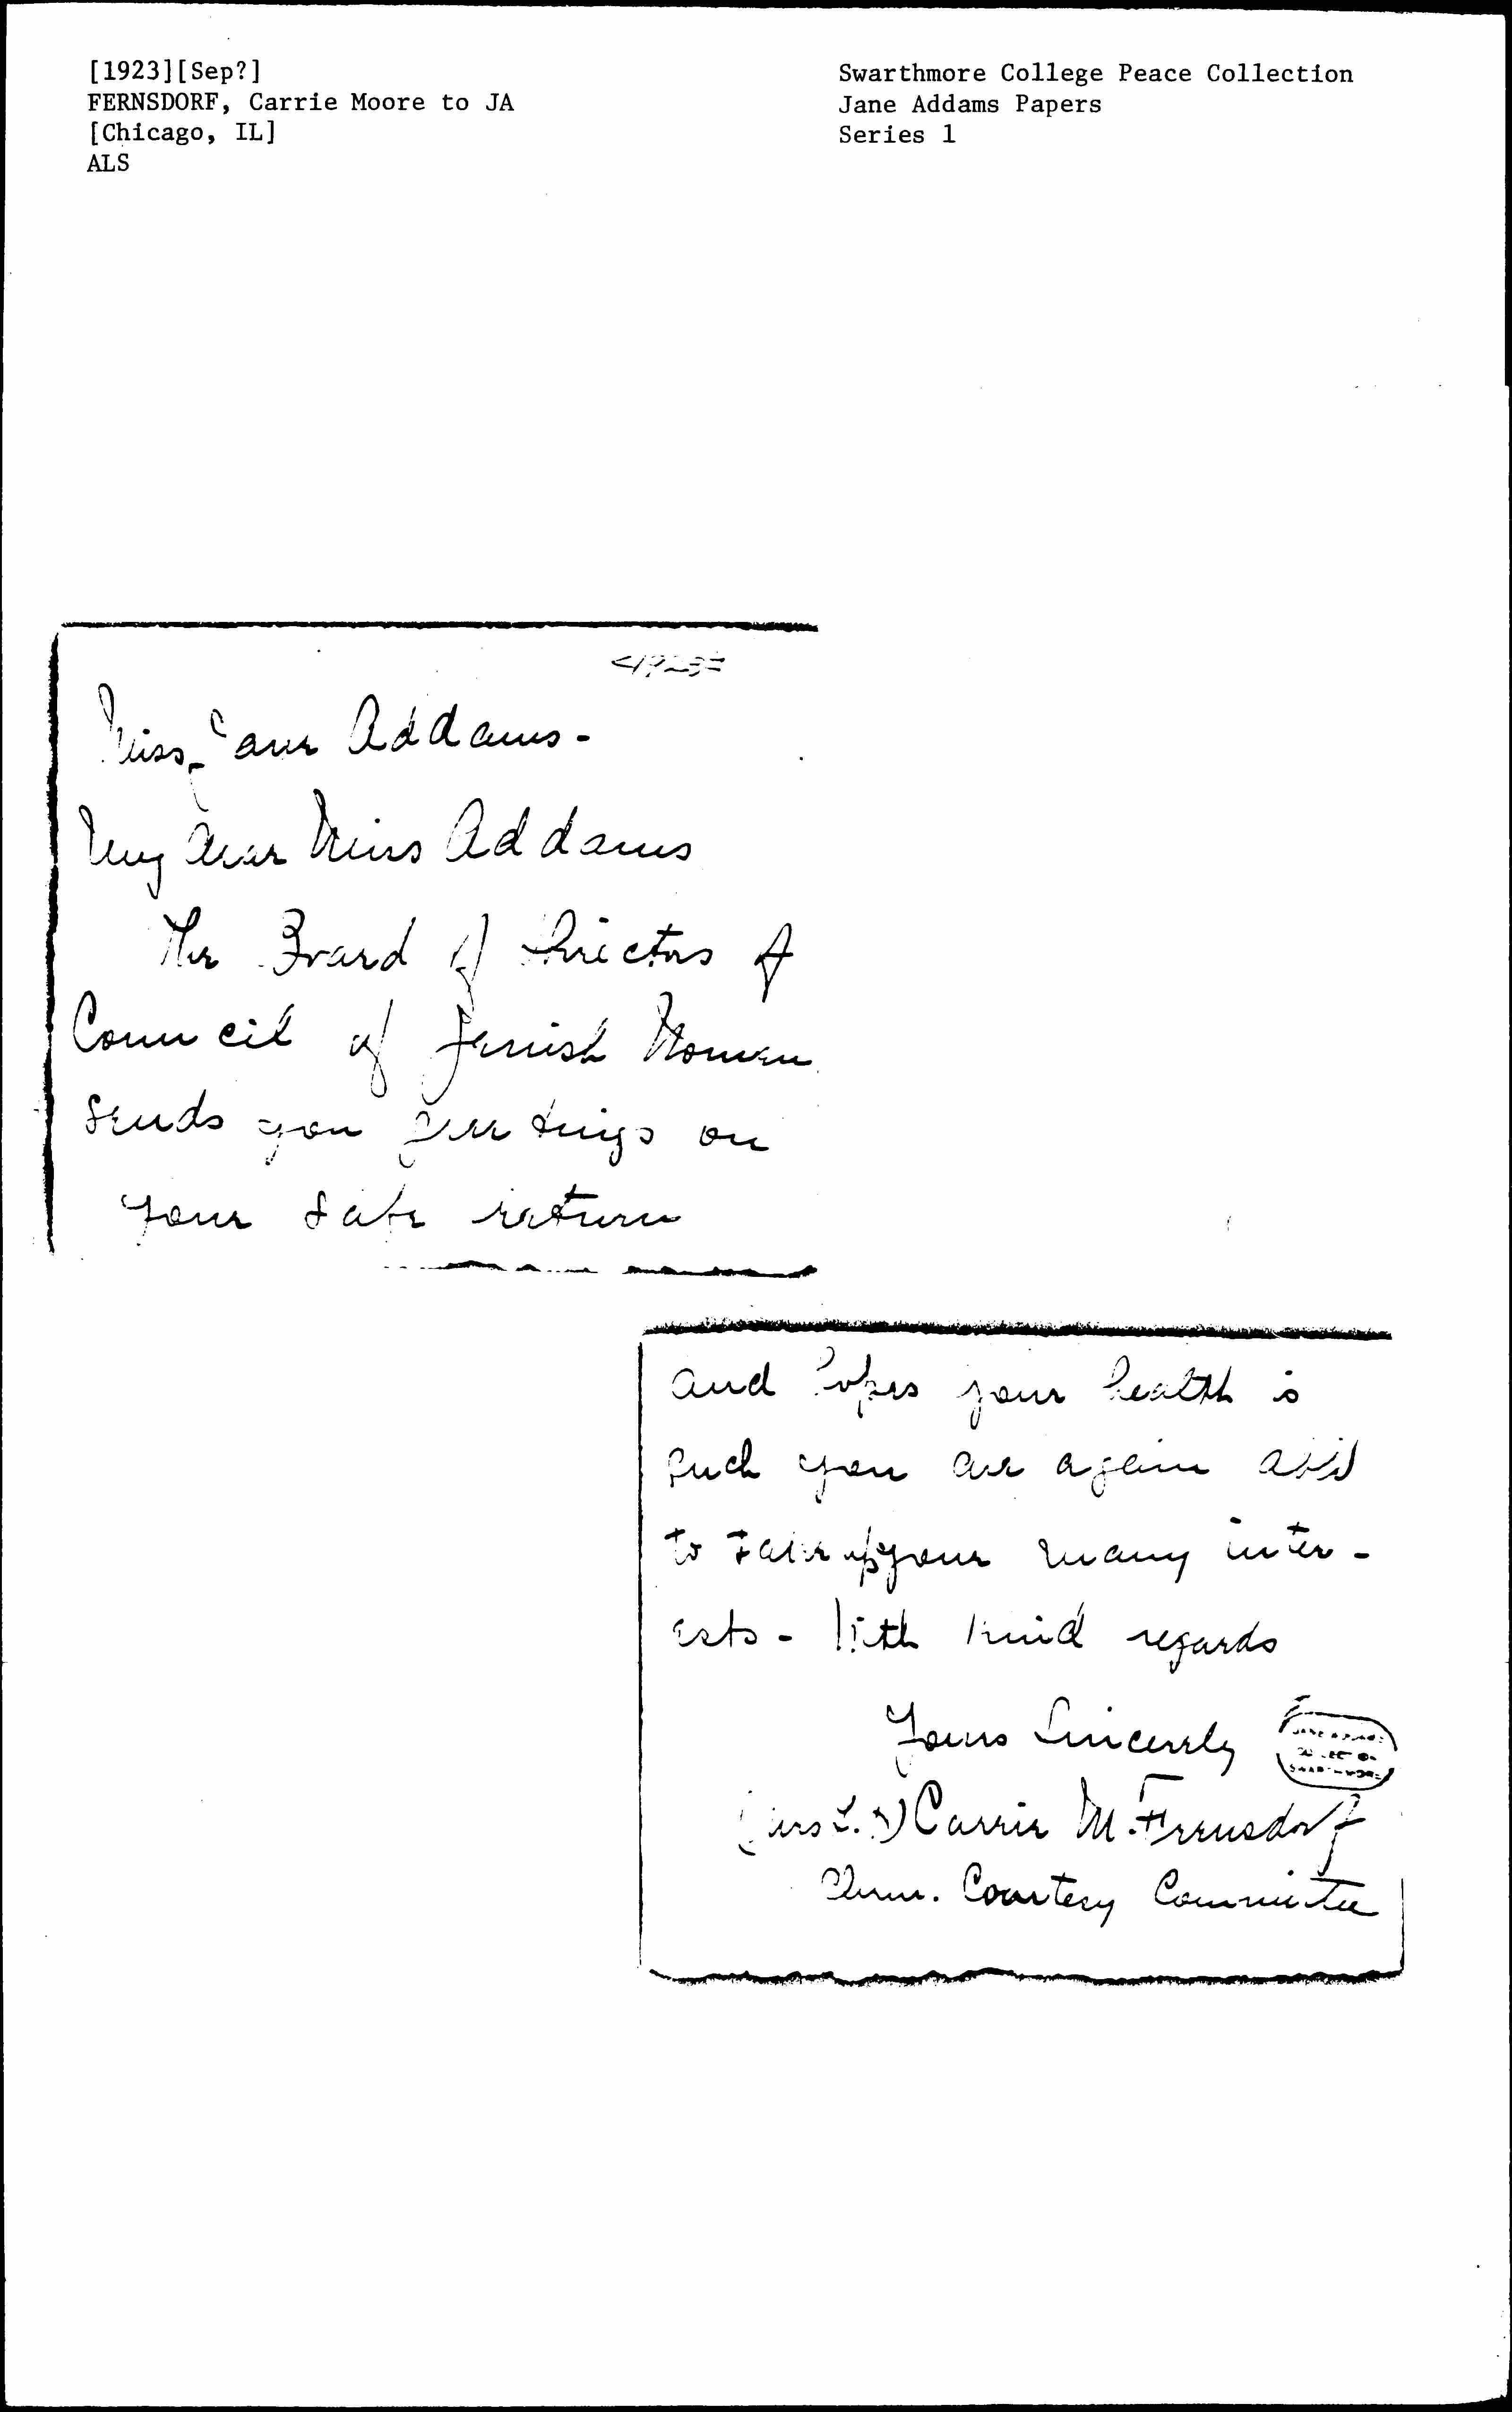 [1923][Sep?]
FERNSDORF, Carrie Moore to JA
[Chicago, IL]
ALS
Swarthmore College Peace Collection
Jane Addams Papers
Series 1
<1923>
Miss Jane Addams -
My dear Miss Addams
The Board of Directors of
Council of Jewish Women
sends you greetings on
your safe return
and hopes your health is
such you are again able
to take up your many inter-
ests - With kind regards
Yours Sincerely
JANE ADDAMS
COLLECTION
SWARTHMORE
(Mrs L. ) Carrie M. Fernsdorf
Chrm. Courtesy Committee